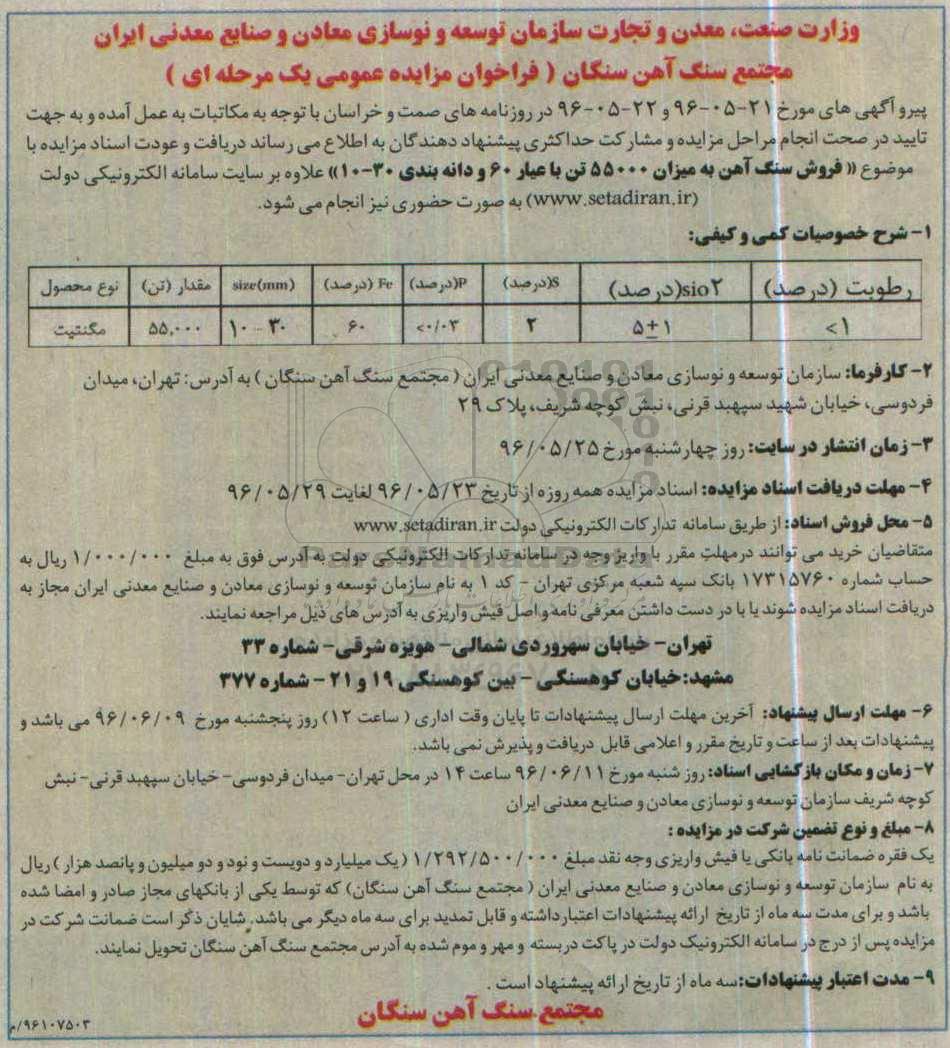 وزارت صنعت، معدن و تجارت سازمان توسعه و نوسازی معادن و صنایع معدنی ایران
مجتمع سنگ آهن سنگان ( فراخوان مزایده عمومی یک مرحله ای )
پیرو آگهی های مورخ ۲۱-۰۵-۹۶ و ۲۲-۰۵-۹۶ در روزنامه های صمت و خراسان با توجه به مکاتبات به عمل آمده و به جهت
تایید در صحت انجام مراحل مزایده و مشارکت حداکثری پیشنهاد دهندگان به اطلاع می رساند دریافت و عودت اسناد مزایده با
موضوع « فروش سنگ آهن به میزان ۵۵۰۰۰ تن با عیار ۶۰ و دانه بندی ۳۰-۱۰» علاوه بر سایت سامانه الکترونیکی دولت
(www.setadiran.ir) به صورت حضوری نیز انجام می شود.
۱- شرح خصوصیات کمی و کیفی:
رطوبت (درصد) sio۲(درصد) S(درصد) P(درصد) Fe (درصد) size(mm) مقدار (تن) نوع محصول
<۱ ۵±۱ ۲ <۰/۰۳ ۶۰ ۱۰-۳۰ ۵۵,۰۰۰ مگنتیت
۲- کارفرما: سازمان توسعه و نوسازی معادن و صنایع معدنی ایران ( مجتمع سنگ آهن سنگان ) به آدرس: تهران، میدان
فردوسی، خیابان شهید سپهبد قرنی، نبش کوچه شریف، پلاک ۲۹
۳- زمان انتشار در سایت: روز چهارشنبه مورخ ۹۶/۰۵/۲۵
۴- مهلت دریافت اسناد مزایده: اسناد مزایده همه روزه از تاریخ ۹۶/۰۵/۲۳ لغایت ۹۶/۰۵/۲۹
۵- محل فروش اسناد: از طریق سامانه تدارکات الکترونیکی دولت www.setadiran.ir
متقاضیان خرید می توانند درمهلت مقرر با واریز وجه در سامانه تدارکات الکترونیکی دولت به آدرس فوق به مبلغ ۱/۰۰۰/۰۰۰ ریال به
حساب شماره ۱۷۳۱۵۷۶۰ بانک سپه شعبه مرکزی تهران - کد ۱ به نام سازمان توسعه و نوسازی معادن و صنایع معدنی ایران مجاز به
دریافت اسناد مزایده شوند یا با در دست داشتن معرفی نامه و اصل فیش واریزی به آدرس های ذیل مراجعه نمایند.
تهران- خیابان سهروردی شمالی- هویزه شرقی- شماره ۳۳
مشهد:خیابان کوهسنگی - بین کوهسنگی ۱۹ و ۲۱ - شماره ۳۷۷
۶- مهلت ارسال پیشنهاد: آخرین مهلت ارسال پیشنهادات تا پایان وقت اداری ( ساعت ۱۲) روز پنجشنبه مورخ ۹۶/۰۶/۰۹ می باشد و
پیشنهادات بعد از ساعت و تاریخ مقرر و اعلامی قابل دریافت و پذیرش نمی باشد.
۷- زمان و مکان بازگشایی اسناد: روز شنبه مورخ ۹۶/۰۶/۱۱ ساعت ۱۴ در محل تهران- میدان فردوسی- خیابان سپهبد قرنی- نبش
کوچه شریف سازمان توسعه و نوسازی معادن و صنایع معدنی ایران
۸- مبلغ و نوع تضمین شرکت در مزایده :
یک فقره ضمانت نامه بانکی یا فیش واریزی وجه نقد مبلغ ۱/۲۹۲/۵۰۰/۰۰۰ ( یک میلیارد و دویست و نود و دو میلیون و پانصد هزار ) ریال
به نام سازمان توسعه و نوسازی معادن و صنایع معدنی ایران ( مجتمع سنگ آهن سنگان) که توسط یکی از بانکهای مجاز صادر و امضا شده
باشد و برای مدت سه ماه از تاریخ ارائه پیشنهادات اعتبار داشته و قابل تمدید برای سه ماه دیگر می باشد. شایان ذکر است ضمانت شرکت در
مزایده پس از درج در سامانه الکترونیک دولت در پاکت دربسته و مهر و موم شده به آدرس مجتمع سنگ آهن سنگان تحویل نمایند.
۹- مدت اعتبار پیشنهادات:سه ماه از تاریخ ارائه پیشنهاد است .
مجتمع سنگ آهن سنگان
۹۶۱۰۷۵۰۳/م